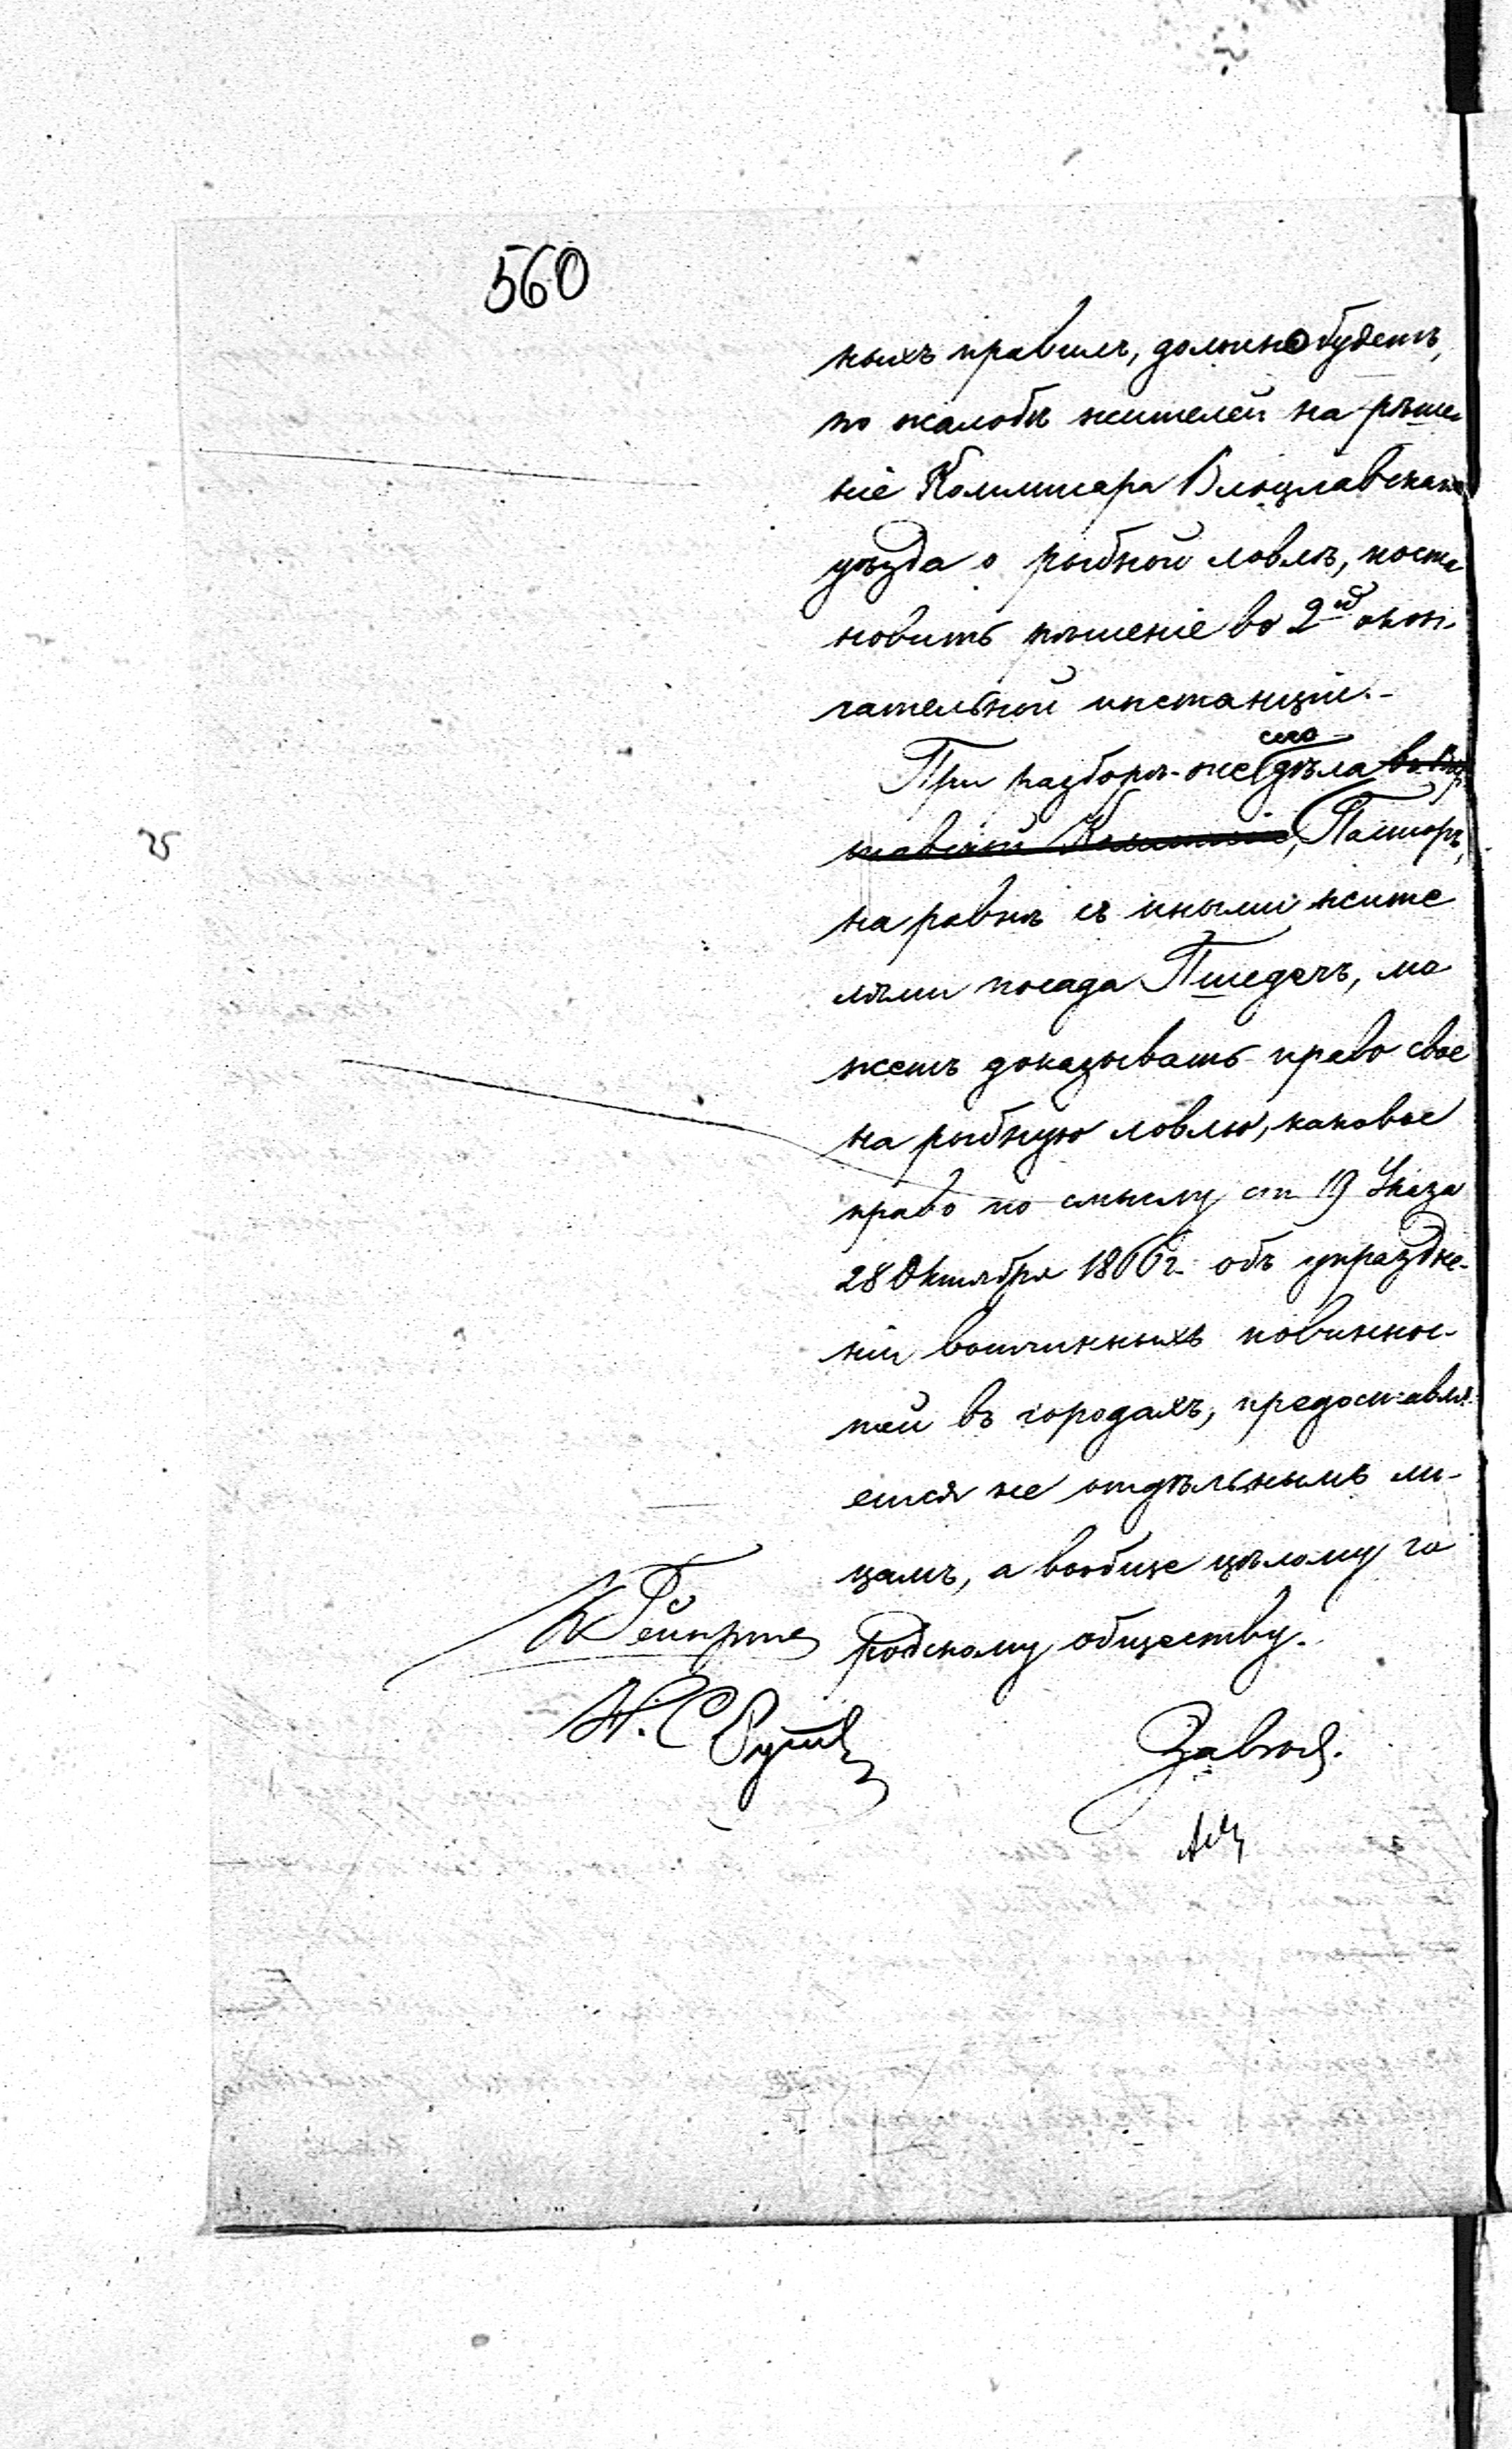 560
ныхъ правилъ, должно будетъ,
по жалобѣ жителей на рѣше-
ніе Коммисара Влоцлавскаго
уѣзда о рыбной ловлѣ, поста
новить рѣшеніе во 2й окон-
чательной инстанціи.-
сего
При разборѣ-же дѣла въ Вар
шавской Коммисіи, Пасторъ,
на равнѣ съ иными жите
лями посада Пшедечъ, мо
жетъ доказывать право свое
на рыбную ловлю, каковое
право по смыслу ст 19 Указа
28 Октября 1866 г. объ упраздне-
ніи вотчинныхъ повиннос-
тей въ городахъ, предоставля-
ется не отдѣльнымъ ли-
цамъ, а вообще цѣлому го
родскому обществу.